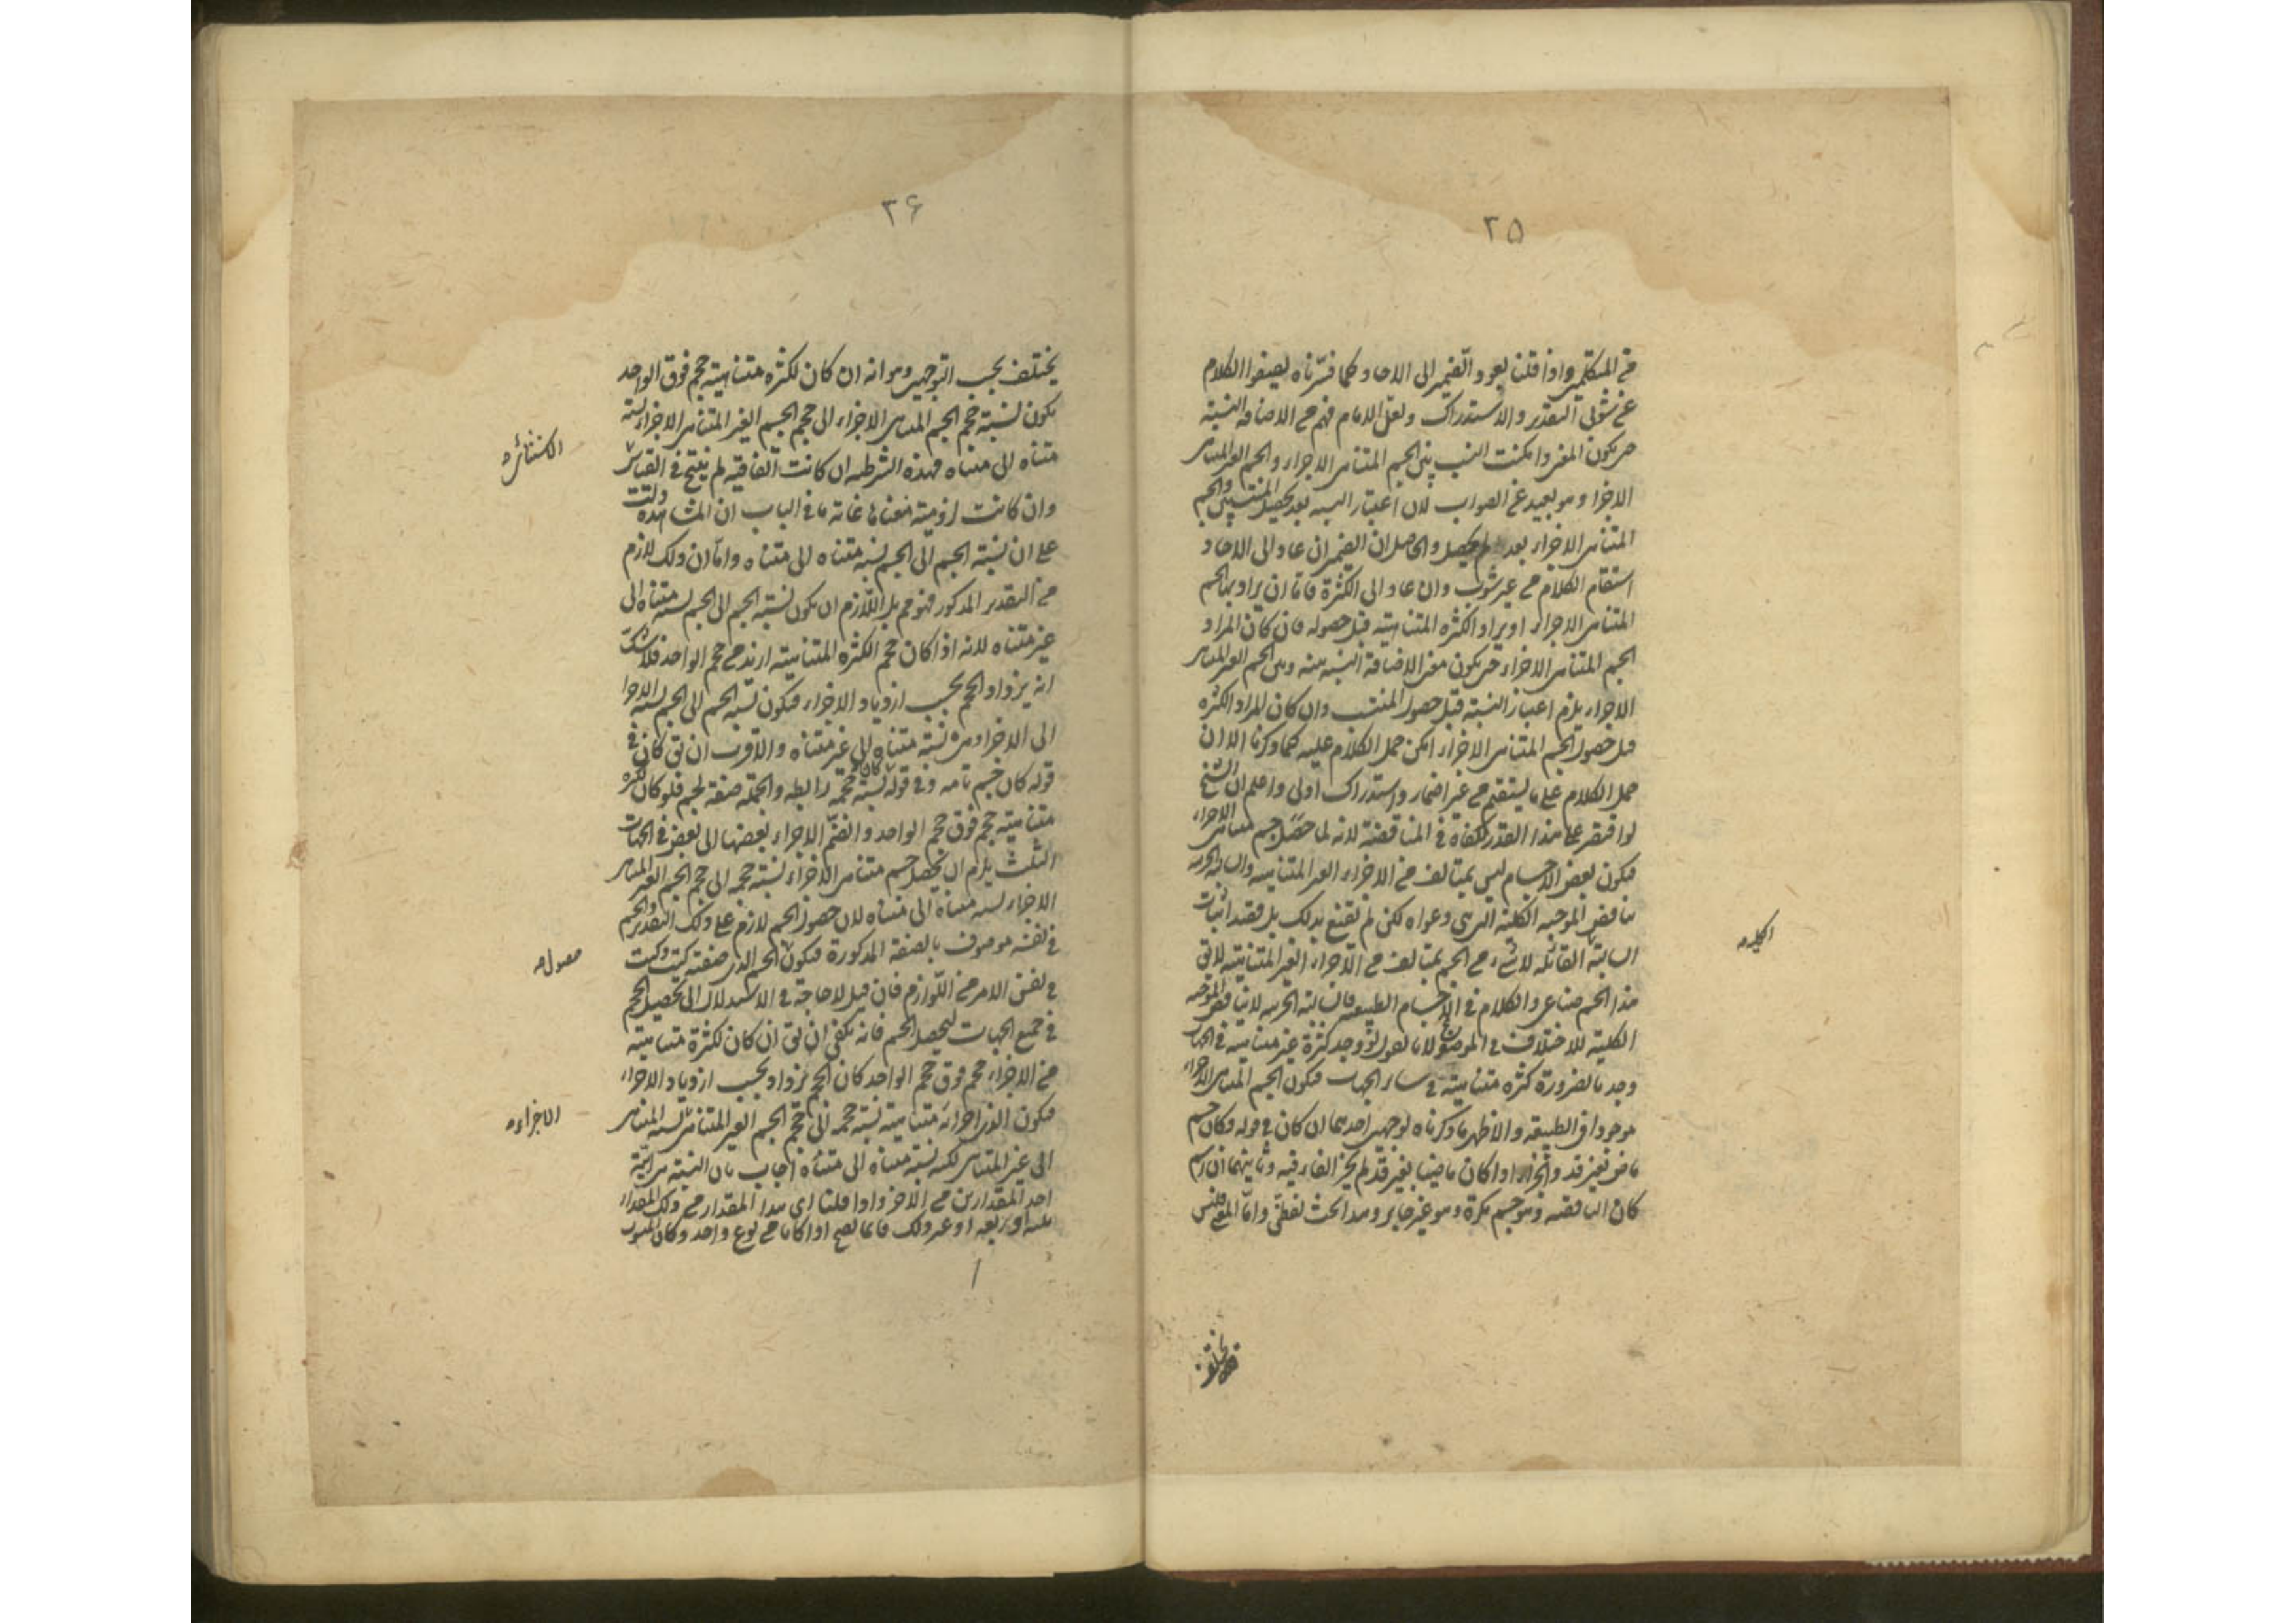 ٢٥
من المتكلمين واذا قلنا يعود الضمير الى الاحاد كما فسّرناه يصفوا الكلام
عن شوبى التقدير والاستدراك ولعل الامام فهم من الاضافة النسبة
حتى يكون المعنى وامكنت النسب بين الجسم المتناهى الاجزاء والجسم الغير المتناهى
الاجزا وهو بعيد عن الصواب لان اعتبار النسبه بعد تحصيل المنتسبين والجسم
المتناهى الاجزاء بعد لم يحصل والحاصل ان الضمير ان عاد الى الاحاد
استقام الكلام من غير شوب وان عاد الى الكثرة فاما ان يراد بها الجسم
المتناهى الاجزاء او يراد الكثره المتناهيته قبل حصوله فان كان المراد
الجسم المتناهى الاجزاء حتى يكون معنى الاضافة النسبه بينه وبين الجسم الغير المتناهى
الاجزاء يلزم اعتبار النسبة قبل حصول المنتسب وان كان المراد الكثره
قبل حصول الجسم المتناهى الاجزاء امكن حمل الكلام عليه كما ذكرنا الا ان
حمل الكلام على ما يستقيم من غير اضمار واستدراك اولى واعلم ان الشيخ
لو اقتصر على هذا القدر لكفاه فى المناقضة لانه لما حصل جسم متناهى الاجزاء
فيكون بعض الاجسام ليس بمتالف من الاجزاء الغير المتناهيه والسالبه الجزيه
يناقض الموجبه الكلية التى هى دعواه لكن لم يقنع بذلك بل قصد اثبات
السالبة القائله لا شىء من الجسم بمتالف من الاجزاء الغير المتناهيته لا يق
هذا الجسم صناعى والكلام فى الاجسام الطبيعيه فالسالبته الجزيه لا يناقض الموجبه
الكلية للاختلاف فى الموضوع لانا نقول لو وجد كثرة غير متناهيه فى الجهات
وجد بالضرورة كثره متناهيته فى ساير الجهات فيكون الجسم المتناهى الاجزاء
موجودا فى الطبيعه والاظهر ما ذكرناه لوجهين احدهما ان كان فى قوله وكان جسم
ماض بغير قد والجزاء اذا كان ماضيا بغير قد لم يجز الفاء فيه وثانيهما ان اسم
كان الناقصه وهو جسم نكرة وهو غير جايز وهذا بحث لفظى واما المعنى فليس
الكليه
٢۶
يختلف بحسب التوجهين وهو انه ان كان لكثره متناهيته حجم فوق الواحد
يكون نسبته حجم الجسم المتناهى الاجزاء الى حجم الجسم الغير المتناهى الاجزاء نسبته
متناه الى متناه فهذه الشرطيه ان كانت اتفاقيه لم ينتج فى القياس
وان كانت لزوميته فغاية ما فى الباب ان المشاهده دلت
على ان نسبته الجسم الى الجسم نسبه متناه الى متناه واما ان ذلك لازم
من التقدير المذكور فهو مم بل اللازم ان يكون نسبته الجسم الى الجسم نسبه متناه الى
غير متناه لانه اذا كان حجم الكثره المتناهيته ازيد من حجم الواحد فلا شك
انه يزداد الحجم بحسب ازدياد الاجزاء فيكون نسبه الحجم الى الحجم نسبه الاجزا
الى الاجزاء وهى نسبته متناه الى غير متناه والاقرب ان يق كان فى
قوله كان جسم تامه وفى قوله كان نسبته حجمه رابطه والجملة صفته لجسم فلو كان لكثره
متناهيته حجم فوق حجم الواحد وانضم الاجزاء بعضها الى بعض فى الجهات
الثلث يلزم ان يحصل جسم متناهى الاجزاء نسبته حجمه الى حجم الجسم الغير المتناهى
الاجزاء نسبه متناه الى متناه لان حصول الجسم لازم على ذلك التقدير والجسم
فى نفسه موصوف بالصفة المذكورة فيكون الجسم الذى صفته كيت وكيت
فى نفس الامر من اللوازم فان قيل لا حاجة فى الاستدلال الى تحصيل الحجم
فى جميع الجهات لتحصل الجسم فانه يكفى ان يق ان كان لكثرة متناهيته
من الاجزاء حجم فوق حجم الواحد كان الحجم يزداد بحسب ازدياد الاجزاء
فيكون الذى اجزائه متناهيته نسبته حجمه الى حجم الجسم الغير المتناهى نسبه المتناهى
الى غير المتناهى لكنه نسبته متناه الى متناه اجاب بان النسبته هى ايية
احد المقدارين من الاخر واذا قلنا اى هذا المقدار من ذلك المقدار
ثلثه او ربعه او غير ذلك فانما يصح اذا كانا من نوع واحد وكان المنسوب
الاجزاء